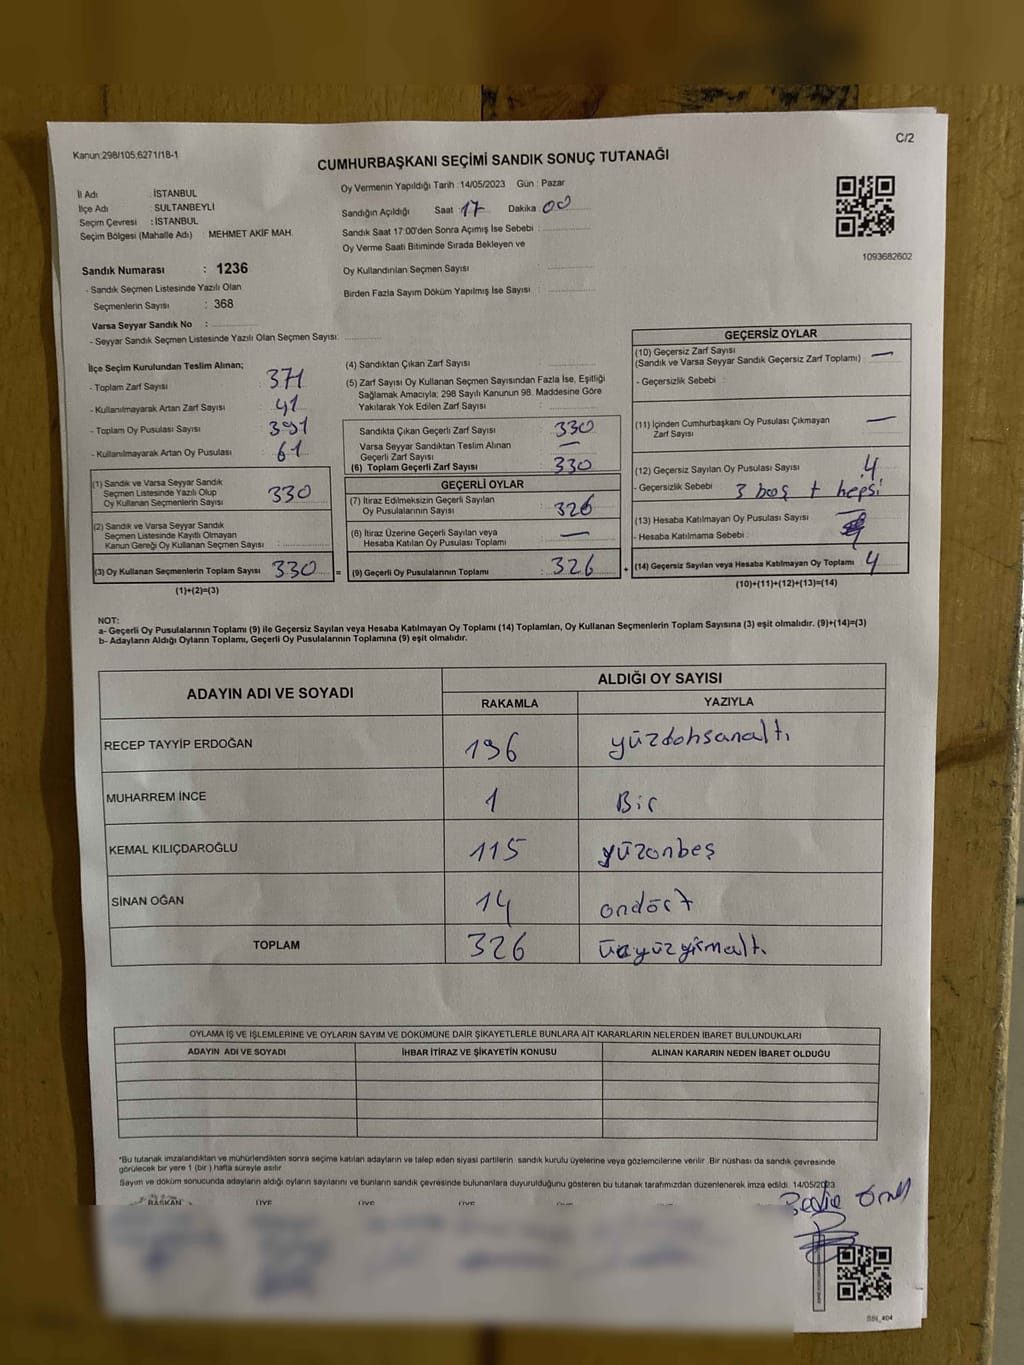 Kanun:298/105;6271/18-1
C/2
CUMHURBAŞKANI SEÇİMİ SANDIK SONUÇ TUTANAĞI
İl Adı : İSTANBUL
İlçe Adı : SULTANBEYLİ
Seçim Çevresi : İSTANBUL
Seçim Bölgesi (Mahalle Adı) : MEHMET AKİF MAH.
Oy Vermenin Yapıldığı Tarih : 14/05/2023 Gün : Pazar
Sandığın Açıldığı Saat 17 Dakika 00
Sandık Saat 17:00'den Sonra Açımış İse Sebebi :
Oy Verme Saati Bitiminde Sırada Bekleyen ve
Oy Kullandırılan Seçmen Sayısı :
Birden Fazla Sayım Döküm Yapılmış İse Sayısı :
1093682602
Sandık Numarası : 1236
- Sandık Seçmen Listesinde Yazılı Olan
Seçmenlerin Sayısı : 368
Varsa Seyyar Sandık No :
- Seyyar Sandık Seçmen Listesinde Yazılı Olan Seçmen Sayısı:
İlçe Seçim Kurulundan Teslim Alınan;
- Toplam Zarf Sayısı : 371
- Kullanılmayarak Artan Zarf Sayısı : 41
- Toplam Oy Pusulası Sayısı : 391
- Kullanılmayarak Artan Oy Pusulası : 61
(1) Sandık ve Varsa Seyyar Sandık
Seçmen Listesinde Yazılı Olup
Oy Kullanan Seçmenlerin Sayısı : 330
(2) Sandık ve Varsa Seyyar Sandık
Seçmen Listesinde Kayıtlı Olmayan
Kanun Gereği Oy Kullanan Seçmen Sayısı :
(3) Oy Kullanan Seçmenlerin Toplam Sayısı : 330 =
(1)+(2)=(3)
(4) Sandıktan Çıkan Zarf Sayısı :
(5) Zarf Sayısı Oy Kullanan Seçmen Sayısından Fazla İse, Eşitliği
Sağlamak Amacıyla; 298 Sayılı Kanunun 98. Maddesine Göre
Yakılarak Yok Edilen Zarf Sayısı :
Sandıkta Çıkan Geçerli Zarf Sayısı : 330
Varsa Seyyar Sandıktan Teslim Alınan
Geçerli Zarf Sayısı : —
(6) Toplam Geçerli Zarf Sayısı : 330
GEÇERLİ OYLAR
(7) İtiraz Edilmeksizin Geçerli Sayılan
Oy Pusulalarının Sayısı : 326
(8) İtiraz Üzerine Geçerli Sayılan veya
Hesaba Katılan Oy Pusulası Toplamı : —
(9) Geçerli Oy Pusulalarının Toplamı : 326 +
GEÇERSİZ OYLAR
(10) Geçersiz Zarf Sayısı : —
(Sandık ve Varsa Seyyar Sandık Geçersiz Zarf Toplamı)
- Geçersizlik Sebebi :
(11) İçinden Cumhurbaşkanı Oy Pusulası Çıkmayan : —
Zarf Sayısı
(12) Geçersiz Sayılan Oy Pusulası Sayısı : 4
- Geçersizlik Sebebi : 3 boş + hepsi
(13) Hesaba Katılmayan Oy Pusulası Sayısı :
- Hesaba Katılmama Sebebi :
(14) Geçersiz Sayılan veya Hesaba Katılmayan Oy Toplamı : 4
(10)+(11)+(12)+(13)=(14)
NOT:
a- Geçerli Oy Pusulalarının Toplamı (9) ile Geçersiz Sayılan veya Hesaba Katılmayan Oy Toplamı (14) Toplamları, Oy Kullanan Seçmenlerin Toplam Sayısına (3) eşit olmalıdır. (9)+(14)=(3)
b- Adayların Aldığı Oyların Toplamı, Geçerli Oy Pusulalarının Toplamına (9) eşit olmalıdır.
ADAYIN ADI VE SOYADI
ALDIĞI OY SAYISI
RAKAMLA YAZIYLA
RECEP TAYYİP ERDOĞAN 196 yüzdoksanaltı
MUHARREM İNCE 1 Bir
KEMAL KILIÇDAROĞLU 115 yüzonbeş
SİNAN OĞAN 14 ondört
TOPLAM 326 üçyüzyirmialtı
OYLAMA İŞ VE İŞLEMLERİNE VE OYLARIN SAYIM VE DÖKÜMÜNE DAİR ŞİKAYETLERLE BUNLARA AİT KARARLARIN NELERDEN İBARET BULUNDUKLARI
ADAYIN ADI VE SOYADI İHBAR İTİRAZ VE ŞİKAYETİN KONUSU ALINAN KARARIN NEDEN İBARET OLDUĞU
*Bu tutanak imzalandıktan ve mühürlendikten sonra seçime katılan adayların ve talep eden siyasi partilerin sandık kurulu üyelerine veya gözlemcilerine verilir. Bir nüshası da sandık çevresinde
görülecek bir yere 1 (bir) hafta süreyle asılır.
Sayım ve döküm sonucunda adayların aldığı oyların sayılarını ve bunların sandık çevresinde bulunanlara duyurulduğunu gösteren bu tutanak tarafımızdan düzenlenerek imza edildi. 14/05/2023
BAŞKAN ÜYE ÜYE ÜYE